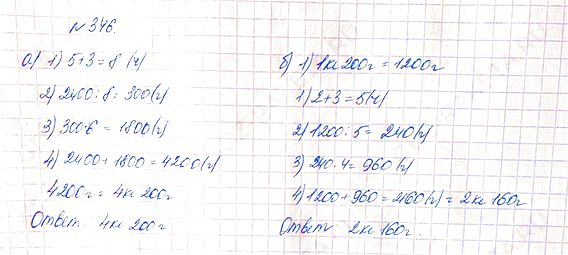 № 346.
а) 1) 5+3=8 (ч)
2) 2400:8=300(г)
3) 300·6=1800(г)
4) 2400+1800=4200(г)
4200г=4кг 200г
Ответ: 4кг 200г
б) 1) 1кг 200г=1200г
1) 2+3=5(ч)
2) 1200:5=240(г)
3) 240·4=960(г)
4) 1200+960=2160(г)=2кг 160г
Ответ: 2кг 160г.